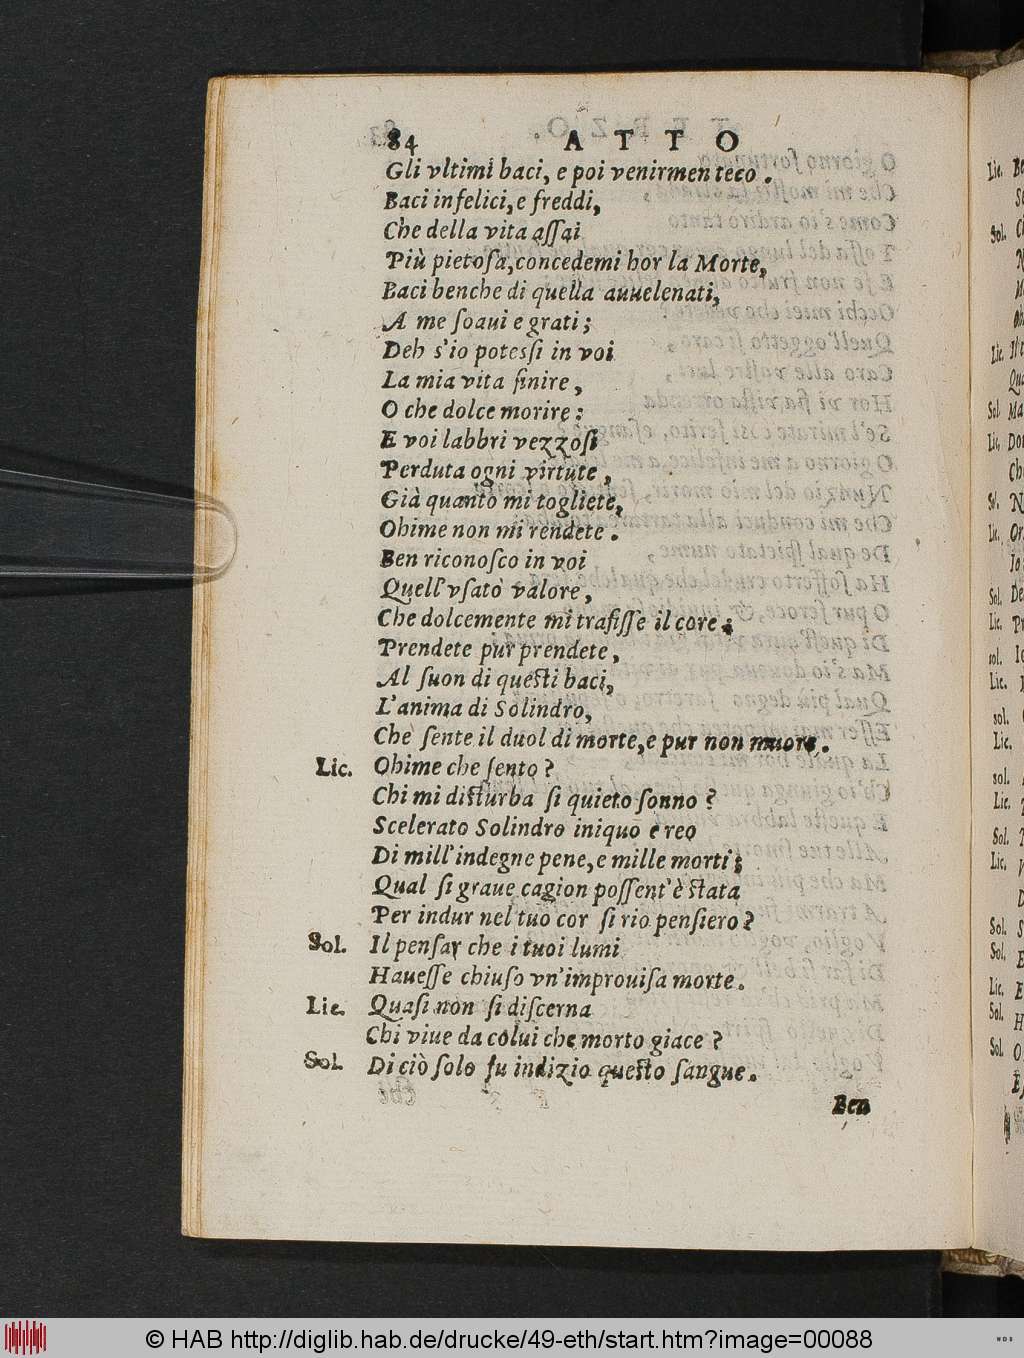 84 ATTO
Gli vltimi baci, e poi venirmen teco.
Baci infelici, e freddi,
Che della vita aſſai
Più pietoſa, concedemi hor la Morte,
Baci benche di quella auuelenati,
A me ſoaui e grati;
Deh s'io poteſſi in voi
La mia vita finire,
O che dolce morire:
E voi labbri vezzoſi
Perduta ogni virtute,
Già quanto mi togliete,
Ohime non mi rendete.
Ben riconoſco in voi
Quell'vſato valore,
Che dolcemente mi trafiſſe il core;
Prendete pur prendete,
Al ſuon di queſti baci,
L'anima di Solindro,
Che ſente il duol di morte, e pur non muore.
Lic. Ohime che ſento?
Chi mi diſturba ſi quieto ſonno?
Scelerato Solindro iniquo e reo
Di mill'indegne pene, e mille morti;
Qual ſi graue cagion poſſent'è ſtata
Per indur nel tuo cor ſi rio penſiero?
Sol. Il penſar che i tuoi lumi
Haueſſe chiuſo vn'improuiſa morte.
Lic. Quaſi non ſi diſcerna
Chi viue da colui che morto giace?
Sol. Di ciò ſolo fu indizio queſto ſangue.
Ben
Lic.
Sol.
Lic.
Sol.
Lic.
Lic.
Sol.
Lic.
sol.
Lic.
sol.
Lic.
sol.
Lic.
Sol.
Lic.
Sol.
Sol.
Lic.
Sol.
Sol.
© HAB http://diglib.hab.de/drucke/49-eth/start.htm?image=00088